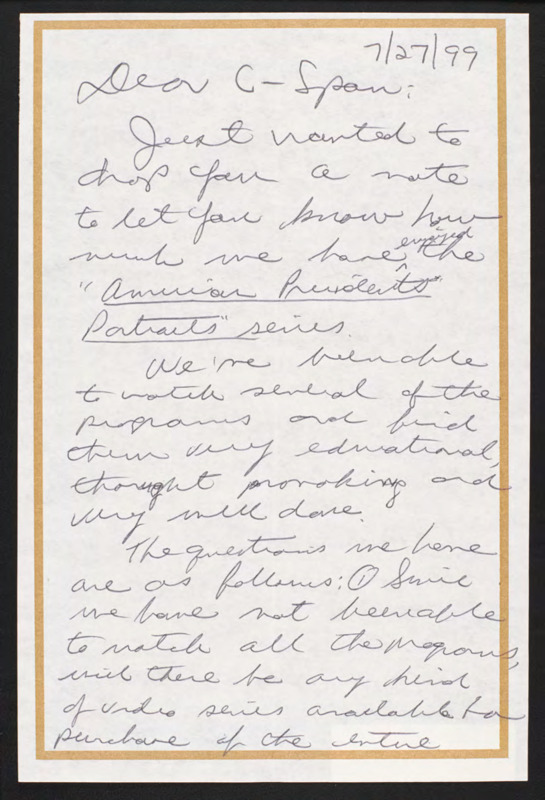 7/27/99
Dear C-Span:
Just wanted to
drop you a note
to let you know how
much we have enjoyed the
"American Presidents"
Portraits" series.
We've been able
to watch several of the
programs and find
them very educational,
thought provoking and
very well done.
The questions we have
are as follows: ① Since
we have not been able
to watch all the programs,
will there be any kind
of video series available for
purchase of the entire